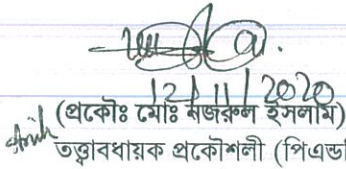 12/11/2020
(প্রকৌঃ মোঃ নজরুল ইসলাম)
তত্ত্বাবধায়ক প্রকৌশলী (পিএন্ড